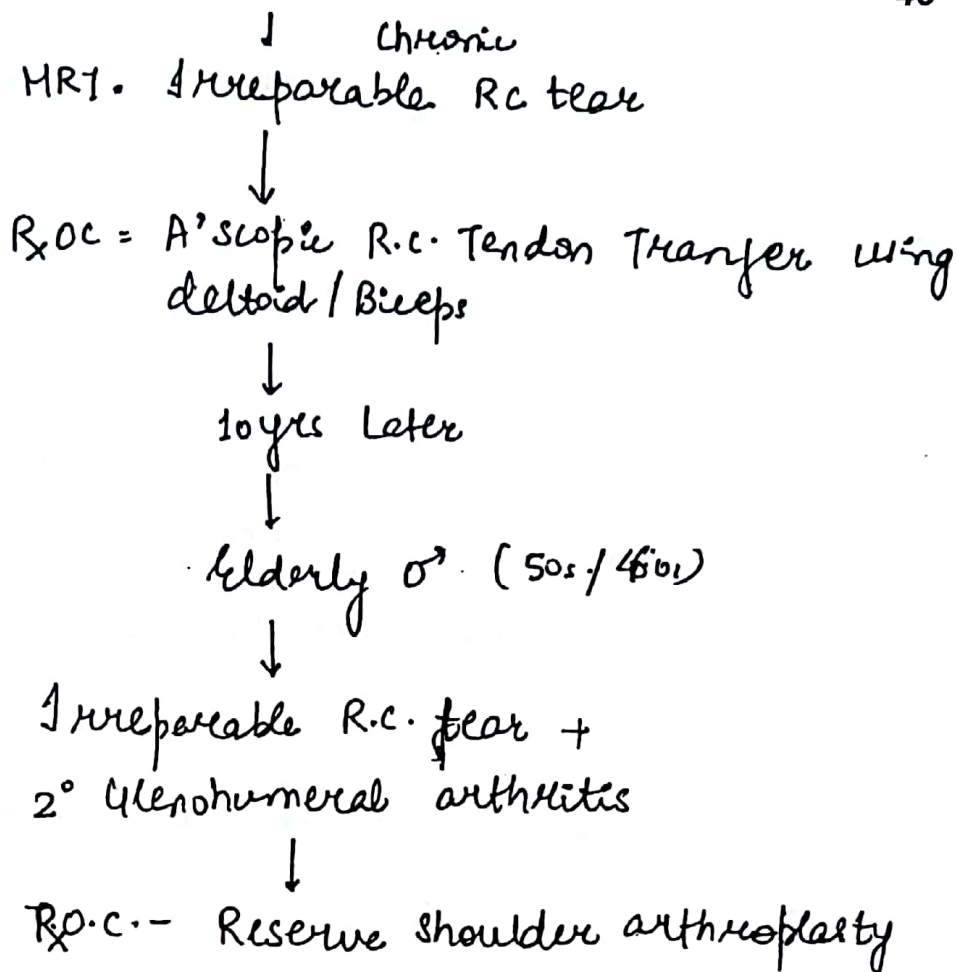 ↓ Chronic
MRI. Irreparable Rc tear
↓
RxOC = A'scopic R.C. Tendon Tranfer using
deltoid / Biceps
↓
10 yrs Later
↓
Elderly ♂. (50s /
↓
Irreparable R.C. tear +
2° Glenohumeral arthritis
↓
RxO.C.- Reserve shoulder arthroplasty